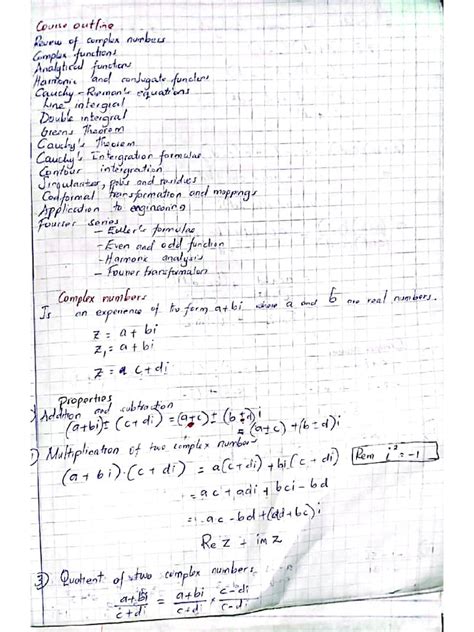 Course outline
Review of complex numbers
Complex functions
Analytical functions
Harmonic and conjugate functions
Cauchy-Riemann's equations
Line intergral
Double intergral
Greens Theorem
Cauchy's Theorem
Cauchy's Intergration formulae
Contour intergration
Singularites, poles and residues
Conformal transformation and mappings
Application to engineering
Fourier series
- Euler's formulae
- Even and odd function
- Harmonic analysis
- Fourier transformation
Complex numbers
Is an experience of the form a+bi where a and b are real numbers.
z = a + bi
z₁ = a + bi
z = c + di
Properties
Addition and subtraction
(a+bi) ± (c+di) = (a±c) ± (b±d)i
= (a±c) + (b±d)i
Multiplication of two complex numbers
(a + bi)·(c + di) = a(c+di) + bi(c + di) Rem i² = -1
= ac + adi + bci - bd
= ac - bd + (ad+bc)i
Re z + im z
3) Quotient of two complex numbers
(a+bi)/(c+di) = (a+bi)/(c+di) × (c-di)/(c-di)